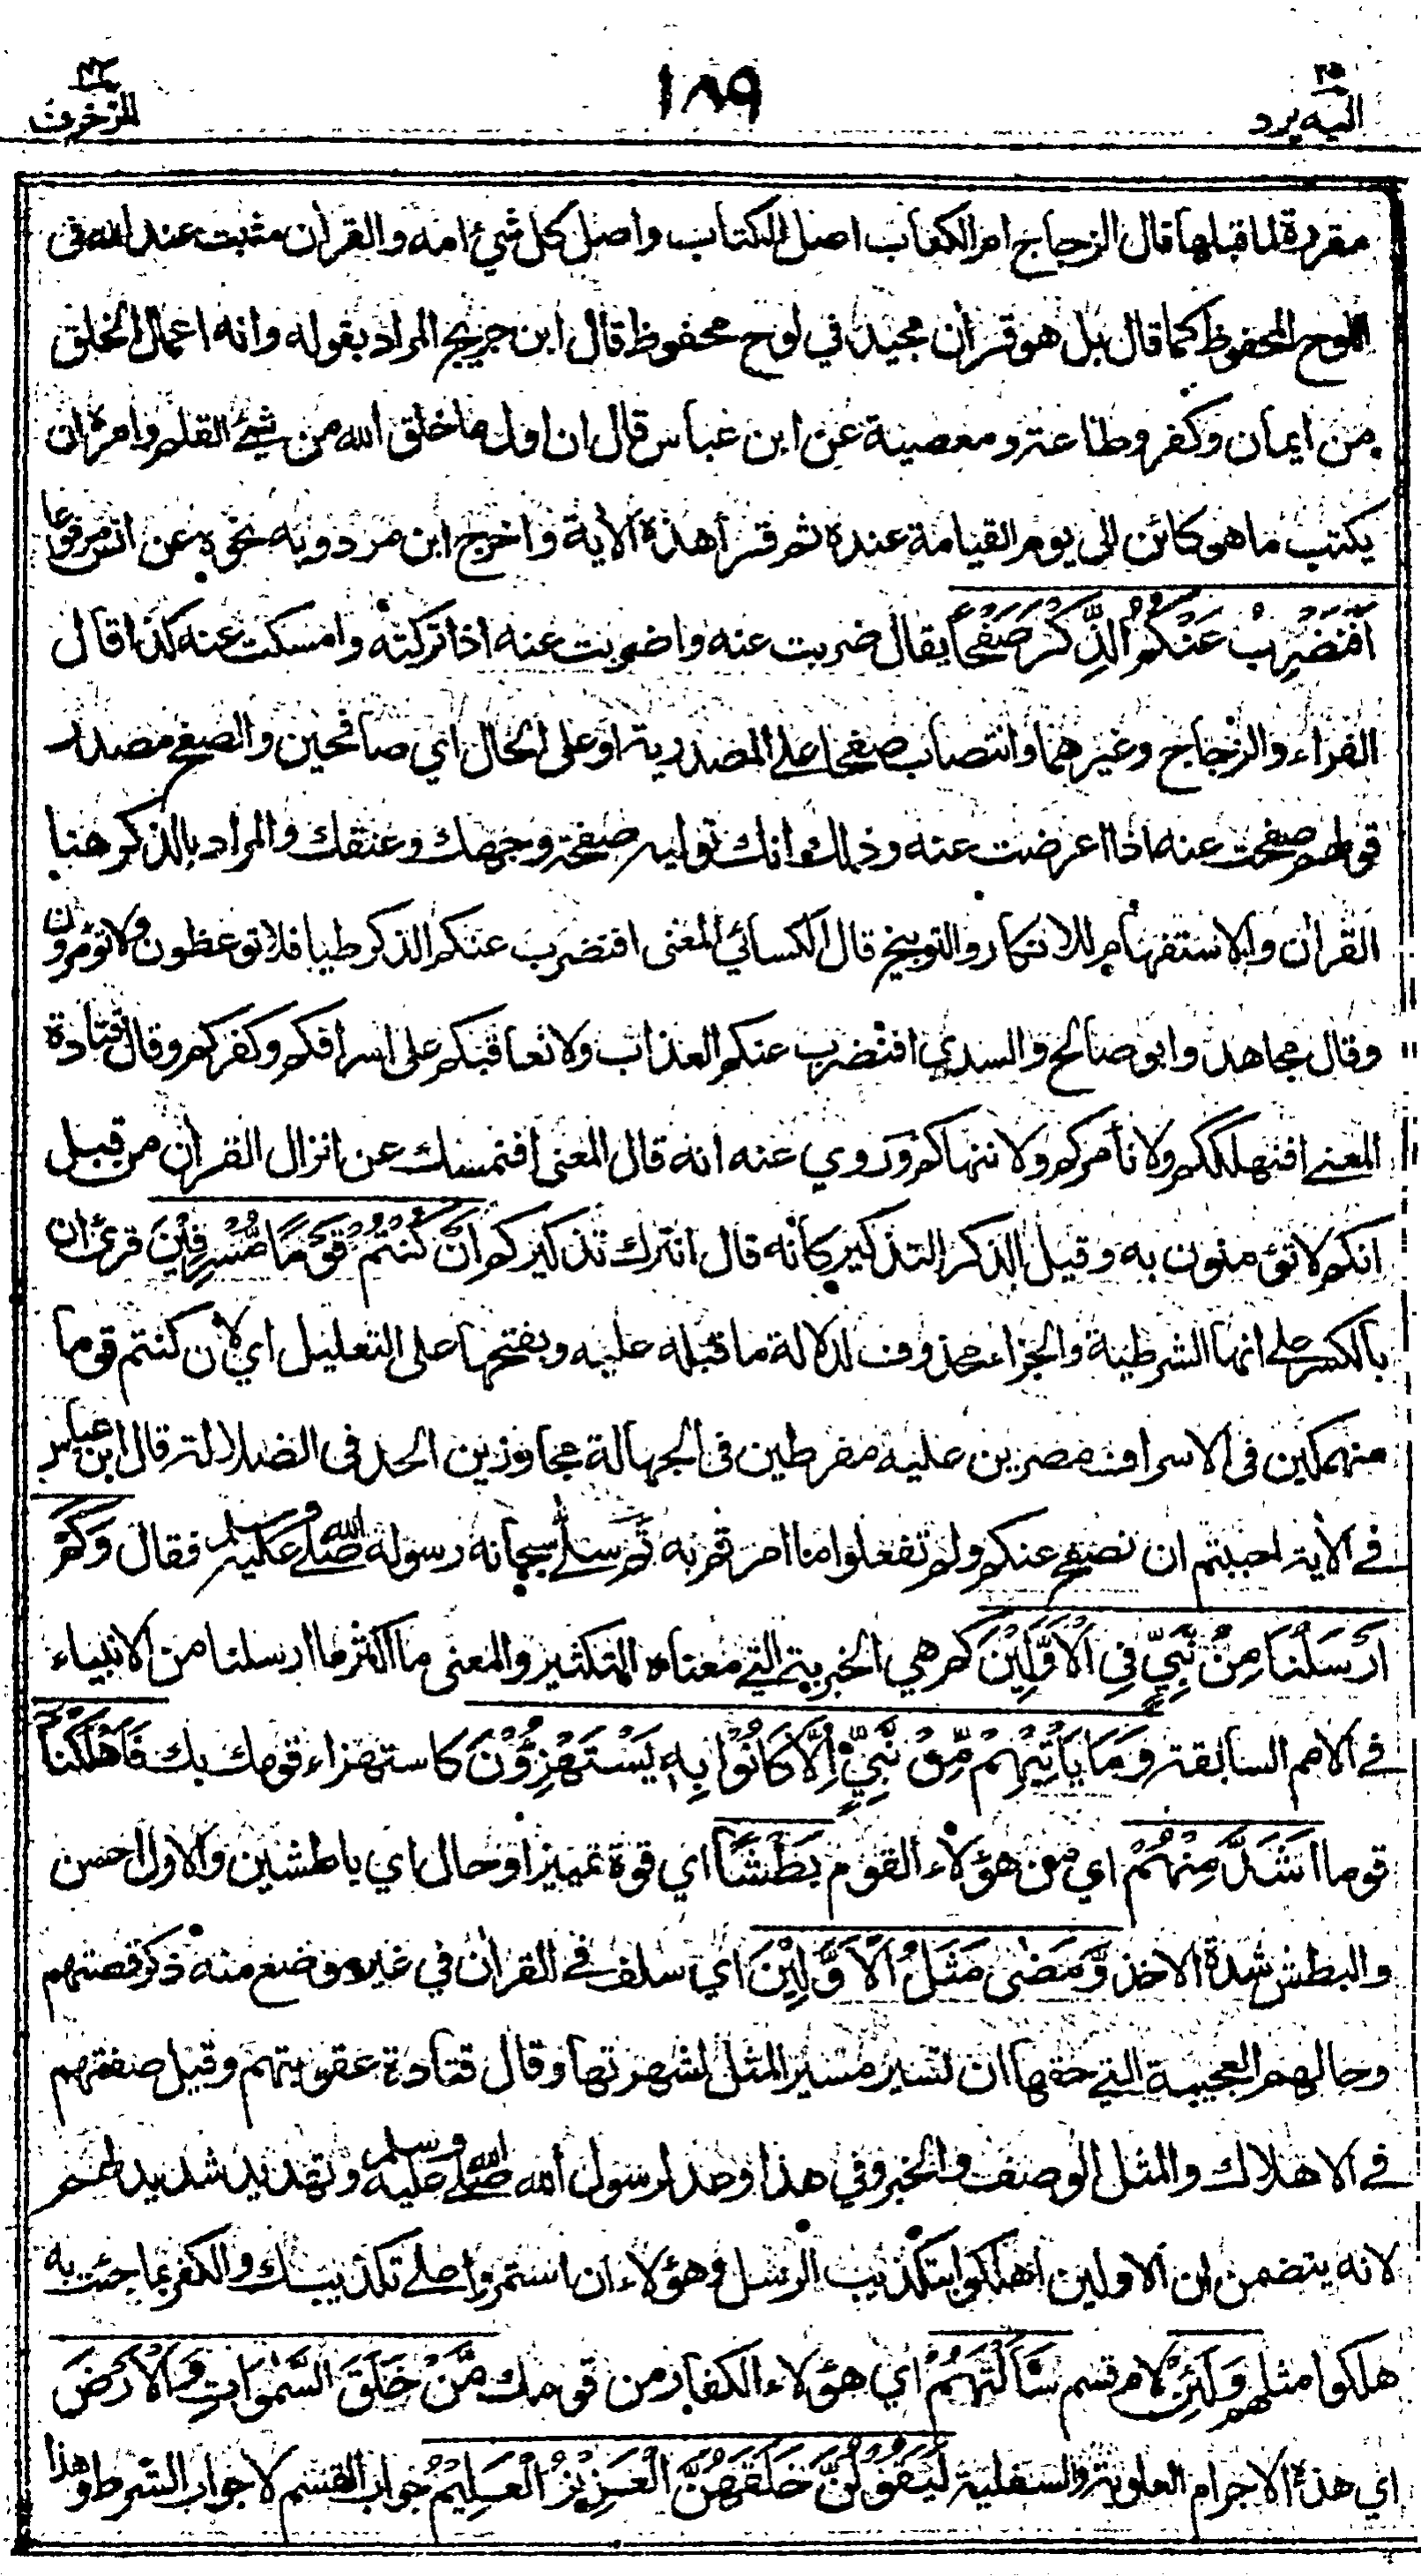 ٢٥
اليه يرد
١٨٩
٤٣
الزخرف
مقررة لما قبلها قال الزجاج ام الكتاب اصل الكتاب واصل كل شيئ امه والقرأن مثبت عند الله فى
اللوح المحفوظ كما قال بل هو قرأن مجيد في لوح محفوظ قال ابن جريج المراد بقوله وانه اعمال الخلق
من ايمان وكفر وطاعة ومعصية عن ابن عباس قال ان اول ما خلق الله من شيئ القلم وامره ان
يكتب ما هو كائن الى يوم القيامة عنده ثم قرأ هذه الأية واخرج ابن مردويه نحوه عن انس مرفوعا
اَفَنَضْرِبُ عَنْكُمُ الذِّكْرَ صَفْحًا يقال ضربت عنه واضربت عنه اذا تركته وامسكت عنه كذا قال
الفراء والزجاج وغيرهما وانتصاب صفحا على المصدرية او على الحال اي صافحين والصفح مصدر
قولهم صفحت عنه اذا اعرضت عنه وذلك انك توليه صفحة وجهك وعنقك والمراد بالذكر هنا
القرأن والاستفهام للانكار والتوبيخ قال الكسائي المعنى افنضرب عنكم الذكر طيا فلا توعظون ولا تؤمرون
وقال مجاهد وابو صالح والسدي افنضرب عنكم العذاب ولا نعاقبكم على اسرافكم وكفركم وقال قتادة
المعنى افنهلككم ولا نأمركم ولا ننهاكم وروي عنه انه قال المعنى افنمسك عن انزال القرأن من قبل
انكم لا تؤمنون به وقيل الذكر التذكير كأنه قال انترك تذكيركم اَنْ كُنْتُمْ قَوْمًا مُّسْرِفِيْنَ قرئ ان
بالكسر على انها الشرطية والجزاء محذوف لدلالة ما قبله عليه وبفتحها على التعليل اي لأن كنتم قوما
منهمكين فى الاسراف مصرين عليه مفرطين فى الجهالة مجاوزين الحد فى الضلالة قال ابن عباس
فى الأية احببتم ان نصفح عنكم ولم تفعلوا ما امرتم به ثم سلى سبحانه رسوله صلى الله عليه وسلم فقال وَكَمْ
اَرْسَلْنَا مِنْ نَّبِيٍّ فِى الْاَوَّلِيْنَ كم هي الخبرية التي معناها التكثير والمعنى ما اكثر ما ارسلنا من الانبياء
فى الامم السابقة وَمَا يَأْتِيْهِمْ مِّنْ نَّبِيٍّ اِلَّا كَانُوْا بِهٖ يَسْتَهْزِؤُنَ كاستهزاء قومك بك فَاَهْلَكْنَا
قوما اَشَدَّ مِنْهُمْ اي من هؤلاء القوم بَطْشًا اي قوة تمييز او حال اي باطشين والاول احسن
والبطش شدة الاخذ وَّمَضٰى مَثَلُ الْاَوَّلِيْنَ اي سلف فى القرأن في غير موضع منه ذكر قصتهم
وحالهم العجيبة التي حقها ان تسير مسير المثل لشهرتها وقال قتادة عقوبتهم وقيل صفتهم
فى الاهلاك والمثل الوصف والخبر وفي هذا وعد لرسول الله صلى الله عليه وسلم وتهديد شديد لهم
لانه يتضمن ان الاولين اهلكوا بتكذيب الرسل وهؤلاء ان استمروا على تكذيبك والكفر بما جئت به
هلكوا مثلهم وَلَئِنْ لام قسم سَاَلْتَهُمْ اي هؤلاء الكفار من قومك مَّنْ خَلَقَ السَّمٰوَاتِ وَالْاَرْضَ
اي هذه الاجرام العلوية والسفلية لَيَقُوْلُنَّ خَلَقَهُنَّ الْعَزِيْزُ الْعَلِيْمُ جواب القسم لا جواب الشرط وهذا